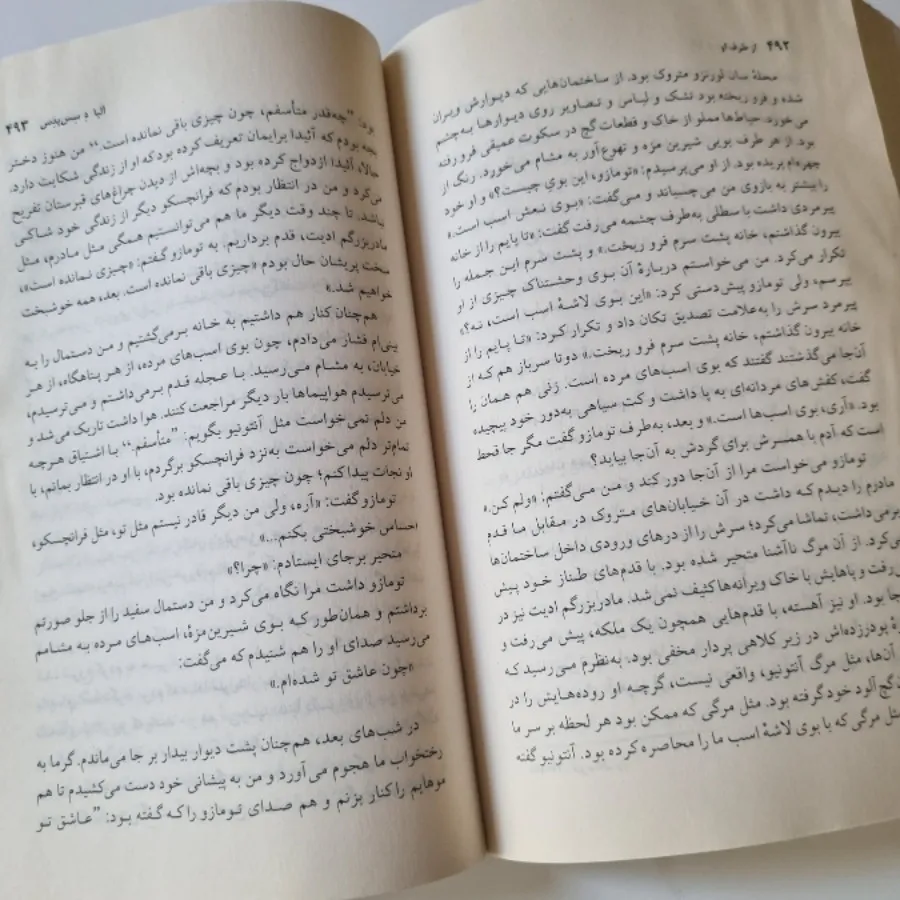 ۴۹۲ از طرف او
محلهٔ سان لورنزو متروک بود. از ساختمان‌هایی که دیوارش ویران
شده و فرو ریخته بود تشک و لباس و تصاویر روی دیوارها به‌چشم
می‌خورد. حیاط‌ها مملو از خاک و قطعات گچ در سکوت عمیقی فرو رفته
بود. از هر طرف بویی شیرین مزه و تهوع‌آور به مشام می‌خورد. رنگ از
چهره‌ام پریده بود. از او می‌پرسیدم: «تومازو، این بوی چیست؟» و او خود
را بیشتر به بازوی من می‌چسباند و می‌گفت: «بوی نعش اسب است.»
پیرمردی داشت با سطلی به‌طرف چشمه می‌رفت گفت: «تا پایم را از خانه
بیرون گذاشتم، خانه پشت سرم فرو ریخت.» و پشت سرم این جمله را
تکرار می‌کرد. من می‌خواستم دربارهٔ آن بوی وحشتناک چیزی از او
بپرسم، ولی تومازو پیش‌دستی کرد: «این بوی لاشهٔ اسب است، نه؟»
پیرمرد سرش را به‌علامت تصدیق تکان داد و تکرار کرد: «تا پایم را از
خانه بیرون گذاشتم، خانه پشت سرم فرو ریخت.» دو تا سرباز هم که از
آن‌جا می‌گذشتند گفتند که بوی اسب‌های مرده است. زنی هم همان را
گفت، کفش‌های مردانه‌ای به پا داشت و کت سیاهی به‌دور خود پیچیده
بود. «آری، بوی اسب‌ها است.» و بعد، به‌طرف تومازو گفت مگر جا قحط
است که آدم با همسرش برای گردش به آن‌جا بیاید؟
تومازو می‌خواست مرا از آن‌جا دور کند و من می‌گفتم: «ولم کن.»
مادرم را دیدم که داشت در آن خیابان‌های متروک در مقابل ما قدم
برمی‌داشت، تماشا می‌کرد؛ سرش را از درهای ورودی داخل ساختمان‌ها
می‌کرد. از آن مرگ ناآشنا متحیر شده بود. با قدم‌های طناز خود پیش
می‌رفت و پاهایش با خاک ویرانه‌ها کثیف نمی‌شد. مادربزرگم ادیت نیز در
جا بود. او نیز آهسته، با قدم‌هایی همچون یک ملکه، پیش می‌رفت و
پودرزده‌اش در زیر کلاهی پردار مخفی بود. به‌نظرم می‌رسید که
آن‌ها، مثل مرگ آنتونیو، واقعی نیست، گرچه او روده‌هایش را در
گچ آلود خود گرفته بود. مثل مرگی که ممکن بود هر لحظه بر سر ما
مثل مرگی که با بوی لاشهٔ اسب ما را محاصره کرده بود. آنتونیو گفته
آلبا د سس‌پدس ۴۹۳
بود: ”چه‌قدر متأسفم، چون چیزی باقی نمانده است.“ من هنوز دختر
بچه بودم که آئیدا برایمان تعریف کرده بود که او از زندگی شکایت دارد.
حالا، آئیدا ازدواج کرده بود و بچه‌اش از دیدن چراغ‌های قبرستان تفریح
می‌کرد و من در انتظار بودم که فرانچسکو دیگر از زندگی خود شاکی
نباشد. تا چند وقت دیگر ما هم می‌توانستیم همگی مثل مادرم، مثل
مادربزرگم ادیت، قدم برداریم. به تومازو گفتم: «چیزی نمانده است»،
سخت پریشان حال بودم «چیزی باقی نمانده است. بعد، همه خوشبخت
خواهیم شد.»
هم‌چنان کنار هم داشتیم به خانه برمی‌گشتیم و من دستمال را به
بینی‌ام فشار می‌دادم، چون بوی اسب‌های مرده، از هر پناهگاه، از هر
خیابان، به مشام می‌رسید. با عجله قدم برمی‌داشتم و می‌ترسیدم،
می‌ترسیدم هواپیماها بار دیگر مراجعت کنند. هوا داشت تاریک می‌شد و
من دلم نمی‌خواست مثل آنتونیو بگویم: ”متأسفم.“ با اشتیاق هرچه
تمام‌تر دلم می‌خواست به‌نزد فرانچسکو برگردم، با او در انتظار بمانم، با
او نجات پیدا کنم؛ چون چیزی باقی نمانده بود.
تومازو گفت: «آره، ولی من دیگر قادر نیستم مثل تو، مثل فرانچسکو،
احساس خوشبختی بکنم...»
متحیر برجای ایستادم: «چرا؟»
تومازو داشت مرا نگاه می‌کرد و من دستمال سفید را از جلو صورتم
برداشتم و همان‌طور که بوی شیرین‌مزهٔ، اسب‌های مرده به مشامم
می‌رسید صدای او را هم شنیدم که می‌گفت:
«چون عاشق تو شده‌ام.»
در شب‌های بعد، هم‌چنان پشت دیوار بیدار بر جا می‌ماندم. گرما به
رختخواب ما هجوم می‌آورد و من به پیشانی خود دست می‌کشیدم تا هم
موهایم را کنار بزنم و هم صدای تومازو را که گفته بود: ”عاشق تو